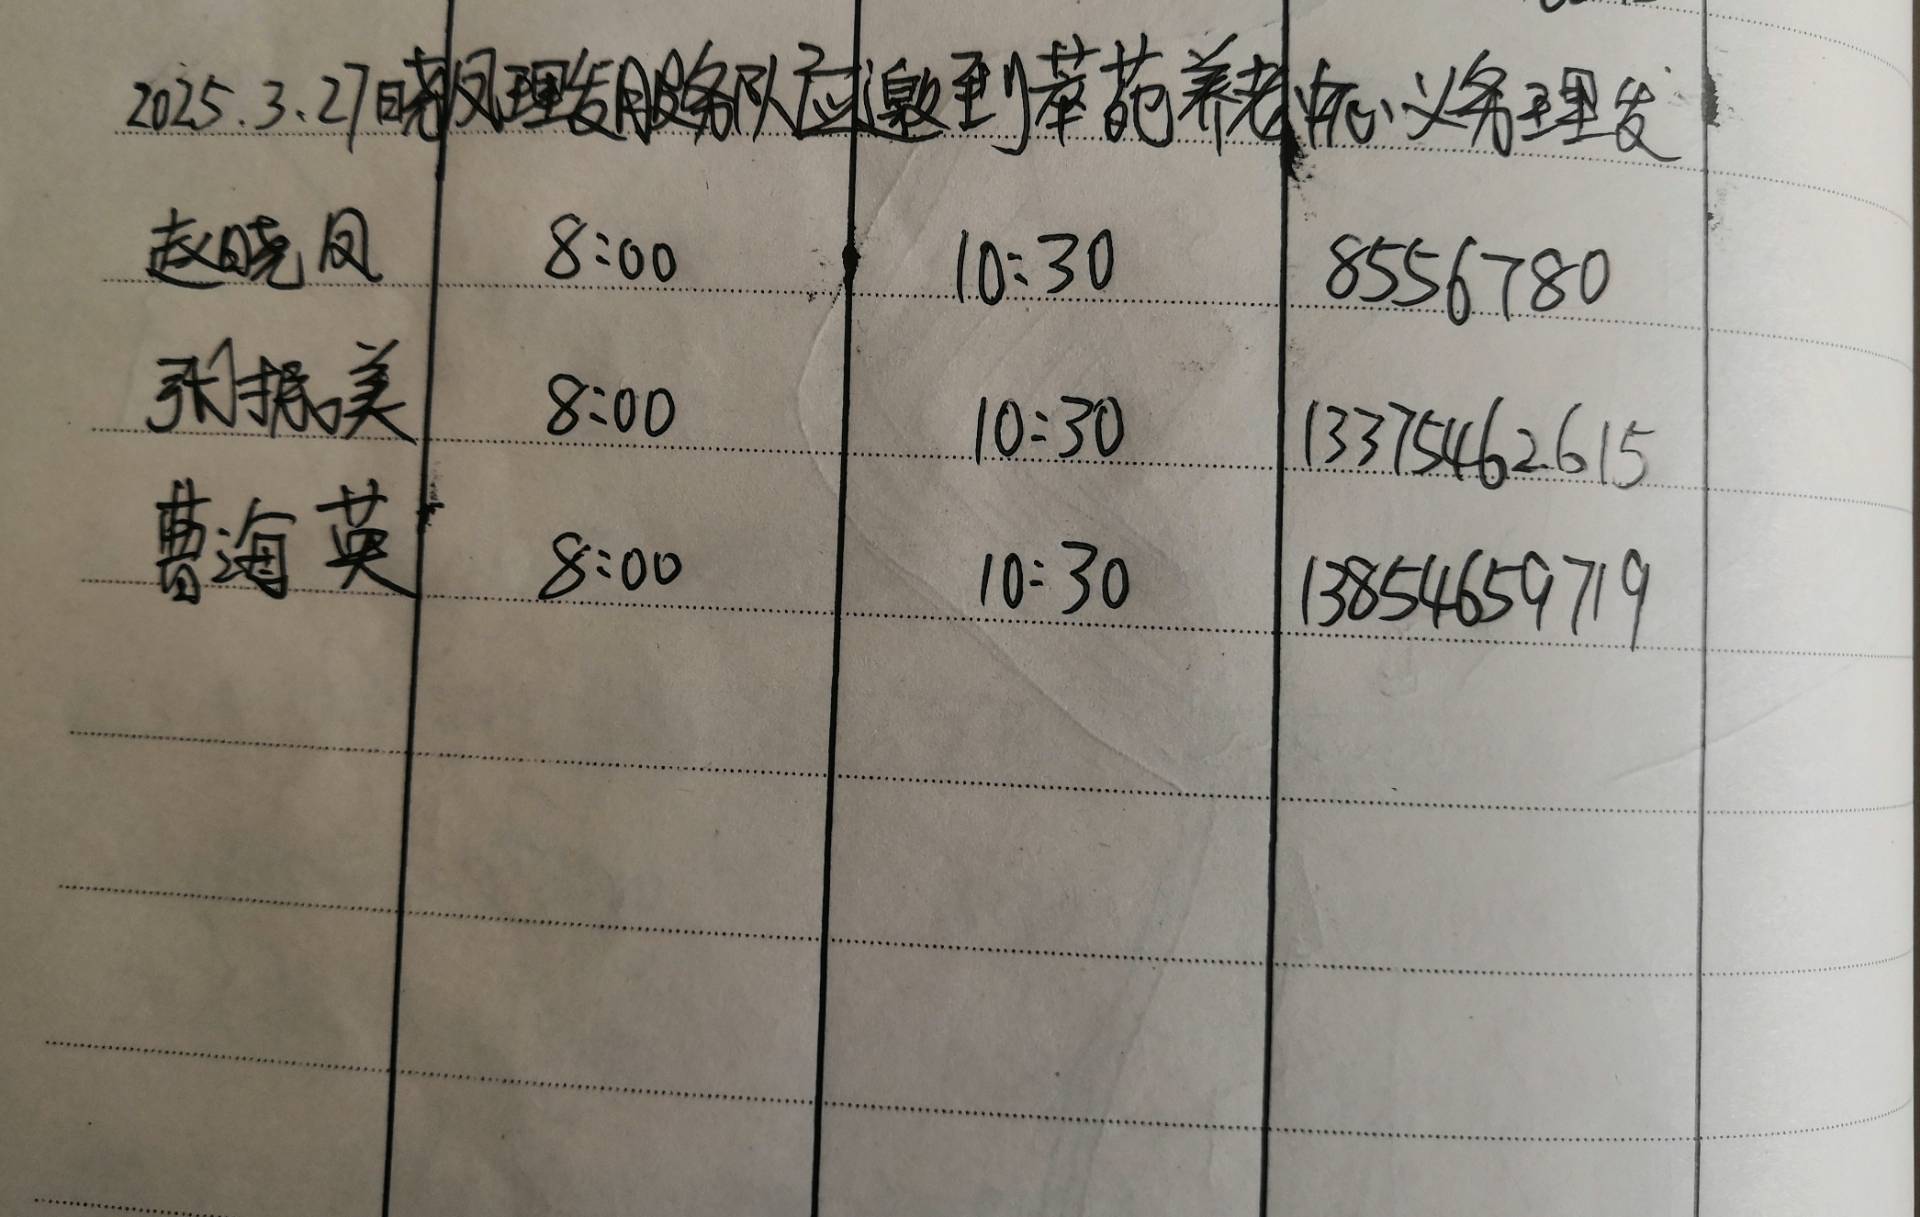 2025.3.27日晓凤理发服务队应邀到莘苑养老中心义务理发
赵晓凤 8:00 10:30 8556780
张振美 8:00 10:30 13375462615
曹海英 8:00 10:30 13854659719